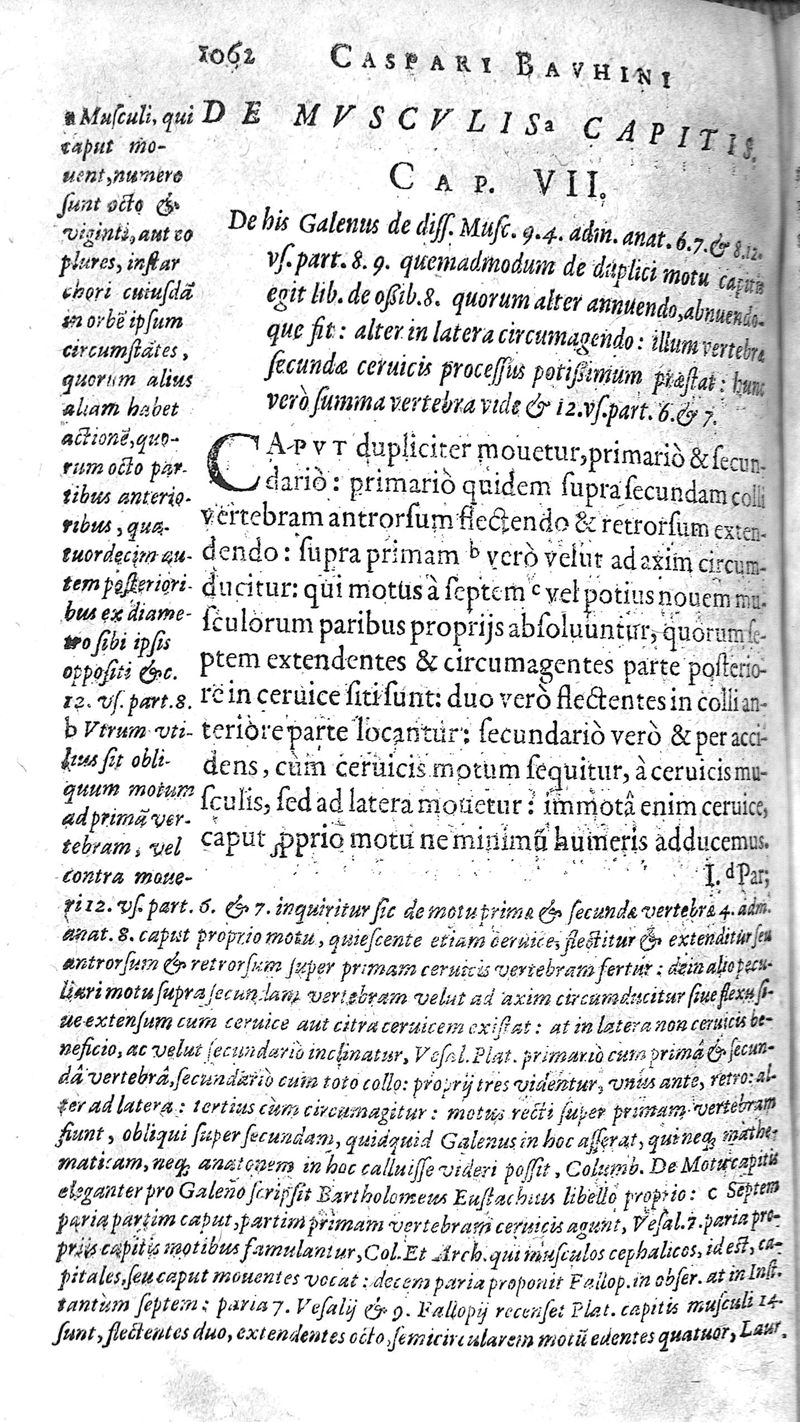 1062 CASPARI BAVHINI
DE MVSCVLISa CAPITIS.
CAP. VII.
De his Galenus de diss. Musc. 9. 4. adm. anat. 6. 7. & 8. 12.
vs. part. 8. 9. quemadmodum de duplici motu capitis
egit lib. de oßib. 8. quorum alter annuendo, abnuendo-
que fit: alter in latera circumagendo: illum vertebræ
secundæ ceruicis processus potißimum præstat: hunc
verò summa vertebra vide & 12. vs. part. 6. & 7.
CAPVT dupliciter mouetur, primariò & secun-
dariò: primariò quidem supra secundam colli
vertebram antrorsum flectendo & retrorsum exten-
dendo: supra primam b verò velut ad axim circum-
ducitur: qui motus à septem c vel potius nouem mu-
sculorum paribus proprijs absoluuntur, quorum se-
ptem extendentes & circumagentes parte posterio-
re in ceruice siti sunt: duo verò flectentes in colli an-
teriore parte locantur: secundariò verò & per acci-
dens, cùm ceruicis motum sequitur, à ceruicis mu-
sculis, sed ad latera mouetur: immotâ enim ceruice,
caput ꝓprio motu ne minimũ humeris adducemus.
I. d Par;
a Musculi, qui
caput mo-
uent, numero
sunt octo &
viginti, aut eo
plures, instar
chori cuiusdã
in orbẽ ipsum
circumstãtes,
quorum alius
aliam habet
actionẽ, quo-
rum octo par-
tibus anterio-
ribus, qua-
tuordecim au-
tem posteriori-
bus ex diame-
tro sibi ipsis
oppositi &c.
12. vs. part. 8.
b Vtrum vti-
lius sit obli-
quum motum
ad primã ver-
tebram, vel
contra moue-
ri 12. vs. part. 6. & 7. inquiritur sic de motu primæ & secundæ vertebræ 4. adm.
anat. 8. caput proprio motu, quiescente etiam ceruice, flectitur & extenditur seu
antrorsum & retrorsum super primam ceruicis vertebram fertur: dein alio pecu-
liari motu supra secundam vertebram velut ad axim circumducitur siue flexu si-
ue extensum cum ceruice aut citra ceruicem existat: at in latera non ceruicis be-
neficio, ac velut secundariò inclinatur, Vesal. Plat. primariò cum primâ & secun-
dâ vertebrâ, secundariò cum toto collo: proprij tres videntur, vnus ante, retro: al-
ter ad latera: tertius cùm circumagitur: motus recti super primam vertebram
fiunt, obliqui super secundam, quidquid Galenus in hoc asserat, qui neq; mathe-
maticam, neq; anatomen in hoc calluisse videri possit, Columb. De Motu capitis
eleganter pro Galeno scripsit Bartholomeus Eustachius libello proprio: c Septem
paria partim caput, partim primam vertebram ceruicis agunt, Vesal. 7. paria pro-
prijs capitis motibus famulantur, Col. Et Arch. qui musculos cephalicos, id est, ca-
pitales, seu caput mouentes vocat: decem paria proponit Fallop. in obser. at in Inst.
tantùm septem: paria 7. Vesalij & 9. Fallopij recenset Plat. capitis musculi 14.
sunt, flectentes duo, extendentes octo, semicircularem motũ edentes quatuor, Laur.